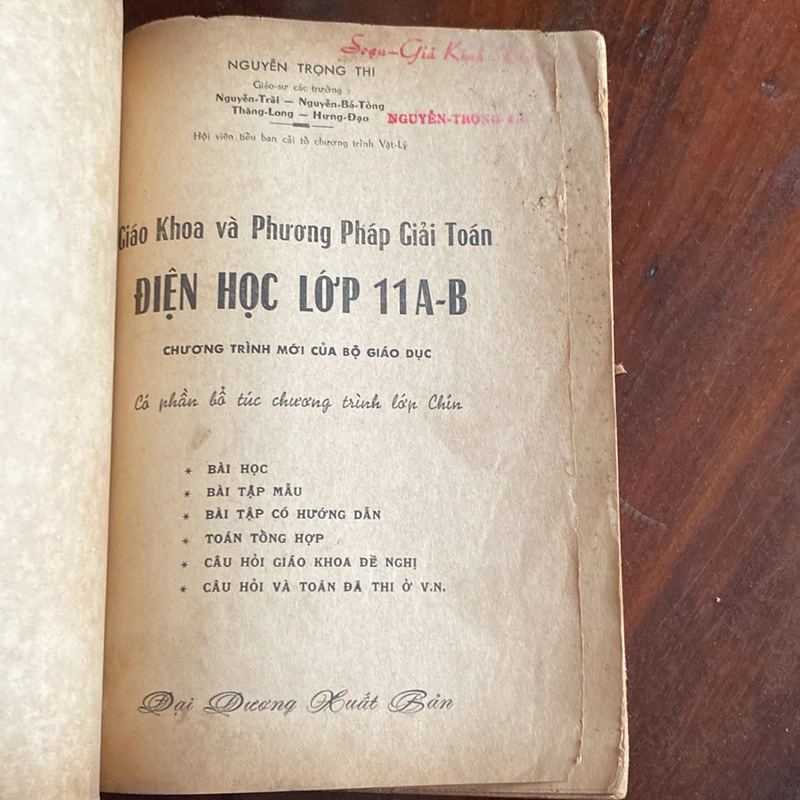 Soạn-Giả Kính
NGUYỄN TRỌNG THI
Giáo-sư các trường :
Nguyễn-Trãi — Nguyễn-Bá-Tòng
Thăng-Long — Hưng-Đạo
NGUYỄN-TRỌNG
Hội viên tiểu ban cải tổ chương trình Vật-Lý
Giáo Khoa và Phương Pháp Giải Toán
ĐIỆN HỌC LỚP 11A-B
CHƯƠNG TRÌNH MỚI CỦA BỘ GIÁO DỤC
Có phần bổ túc chương trình lớp Chín
* BÀI HỌC
* BÀI TẬP MẪU
* BÀI TẬP CÓ HƯỚNG DẪN
* TOÁN TỔNG HỢP
* CÂU HỎI GIÁO KHOA ĐỀ NGHỊ
* CÂU HỎI VÀ TOÁN ĐÃ THI Ở V.N.
Đại Dương Xuất Bản